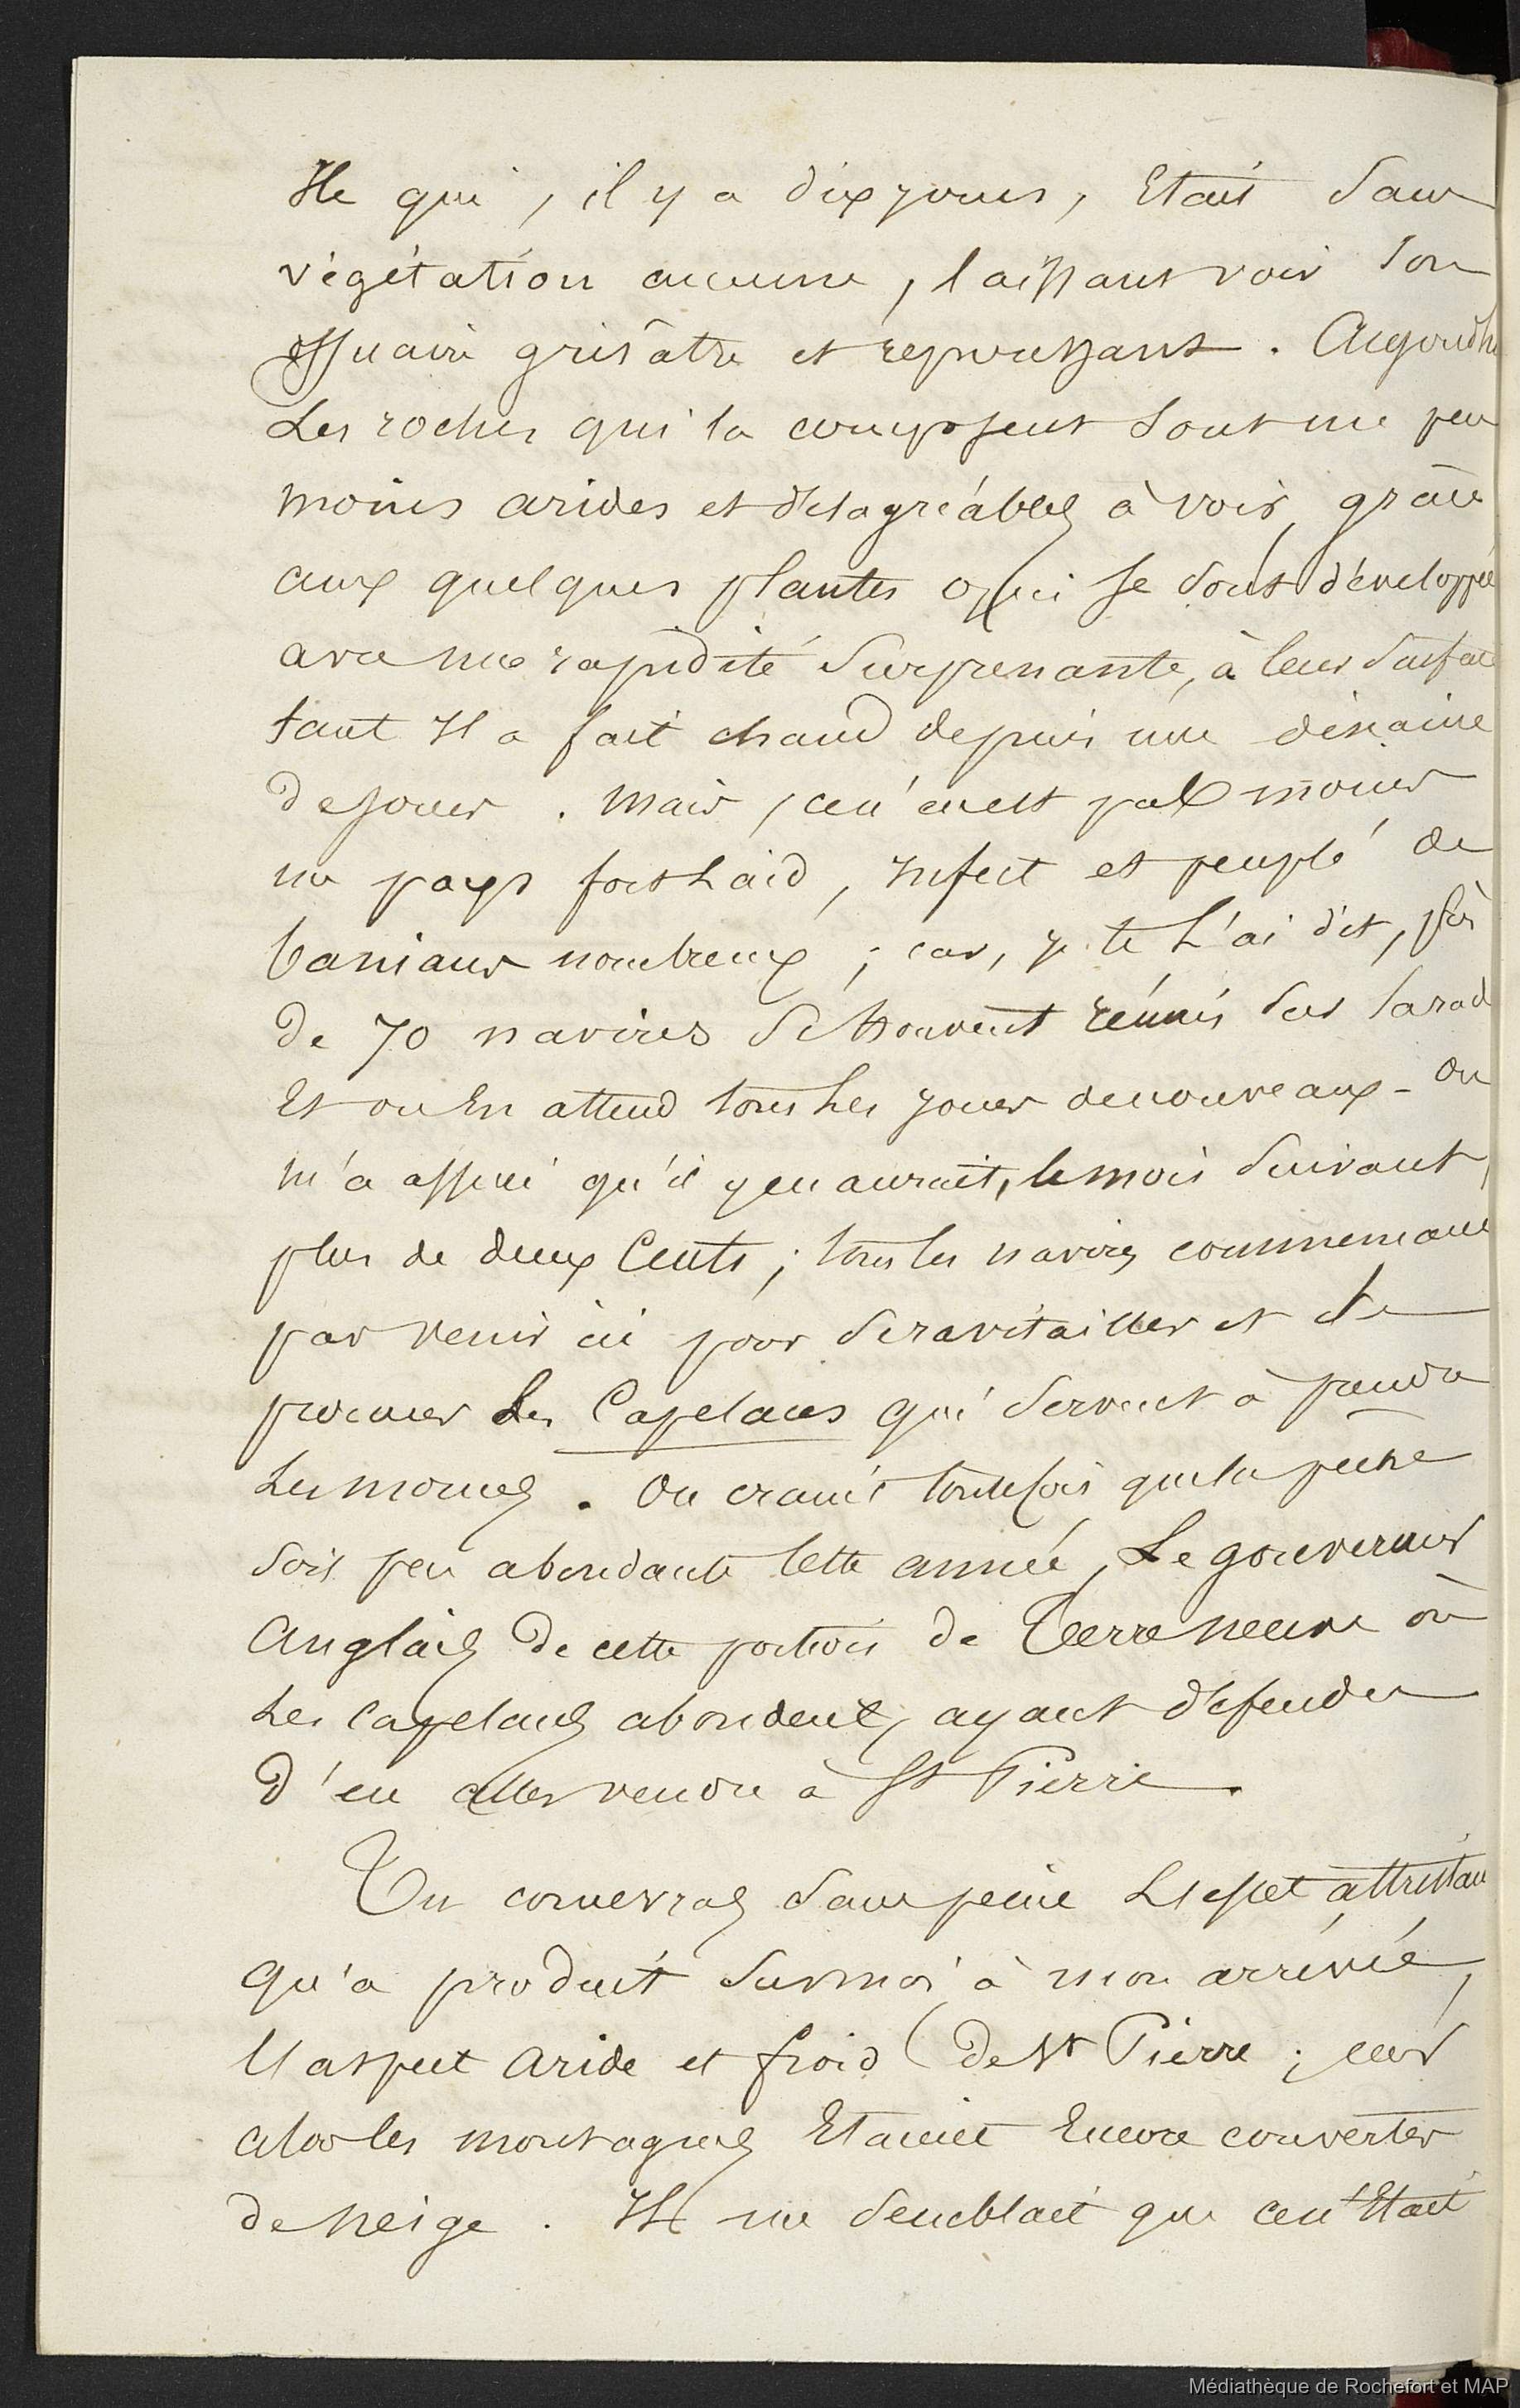 Ile qui, il y a dix jours, était sans
végétation aucune, laissant voir son
ossuaire grisâtre et repoussant. Aujourd'hu
les roches qui la composent sont un peu
moins arides et désagréables à voir, grâce
aux quelques plantes qui se sont développées
avec une rapidité surprenante, à leur surface
tant il a fait chaud depuis une dizaine
de jours. Mais, ce n'en est pas moins
un pays fort laid, infect et peuplé de
nombreux ; car, je te l'ai dit, plus
de 70 navires se trouvent réunis sur la rade
Et on en attend tous les jours de nouveaux - On
m'a assuré qu'il y en aurait, le mois suivant,
plus de deux cents ; tous les navires commençant
par venir ici pour se ravitailler et se
procurer les Capelans qui servent à prendre
les morues. On craint toutefois que la pêche
soit peu abondante cette année, Le gouverneur
Anglais de cette portion de Terre neuve où
les capelans abondent, ayant défendu
d'en aller vendre à St Pierre.
Tu concevras sans peine l'effet attristant
qu'a produit sur moi, à mon arrivée,
l'aspect aride et froid de St Pierre ; car
alors les montagnes Etaient Encore couvertes
de neige. Il me semblait que ce n'était
Médiathèque de Rochefort et MAP